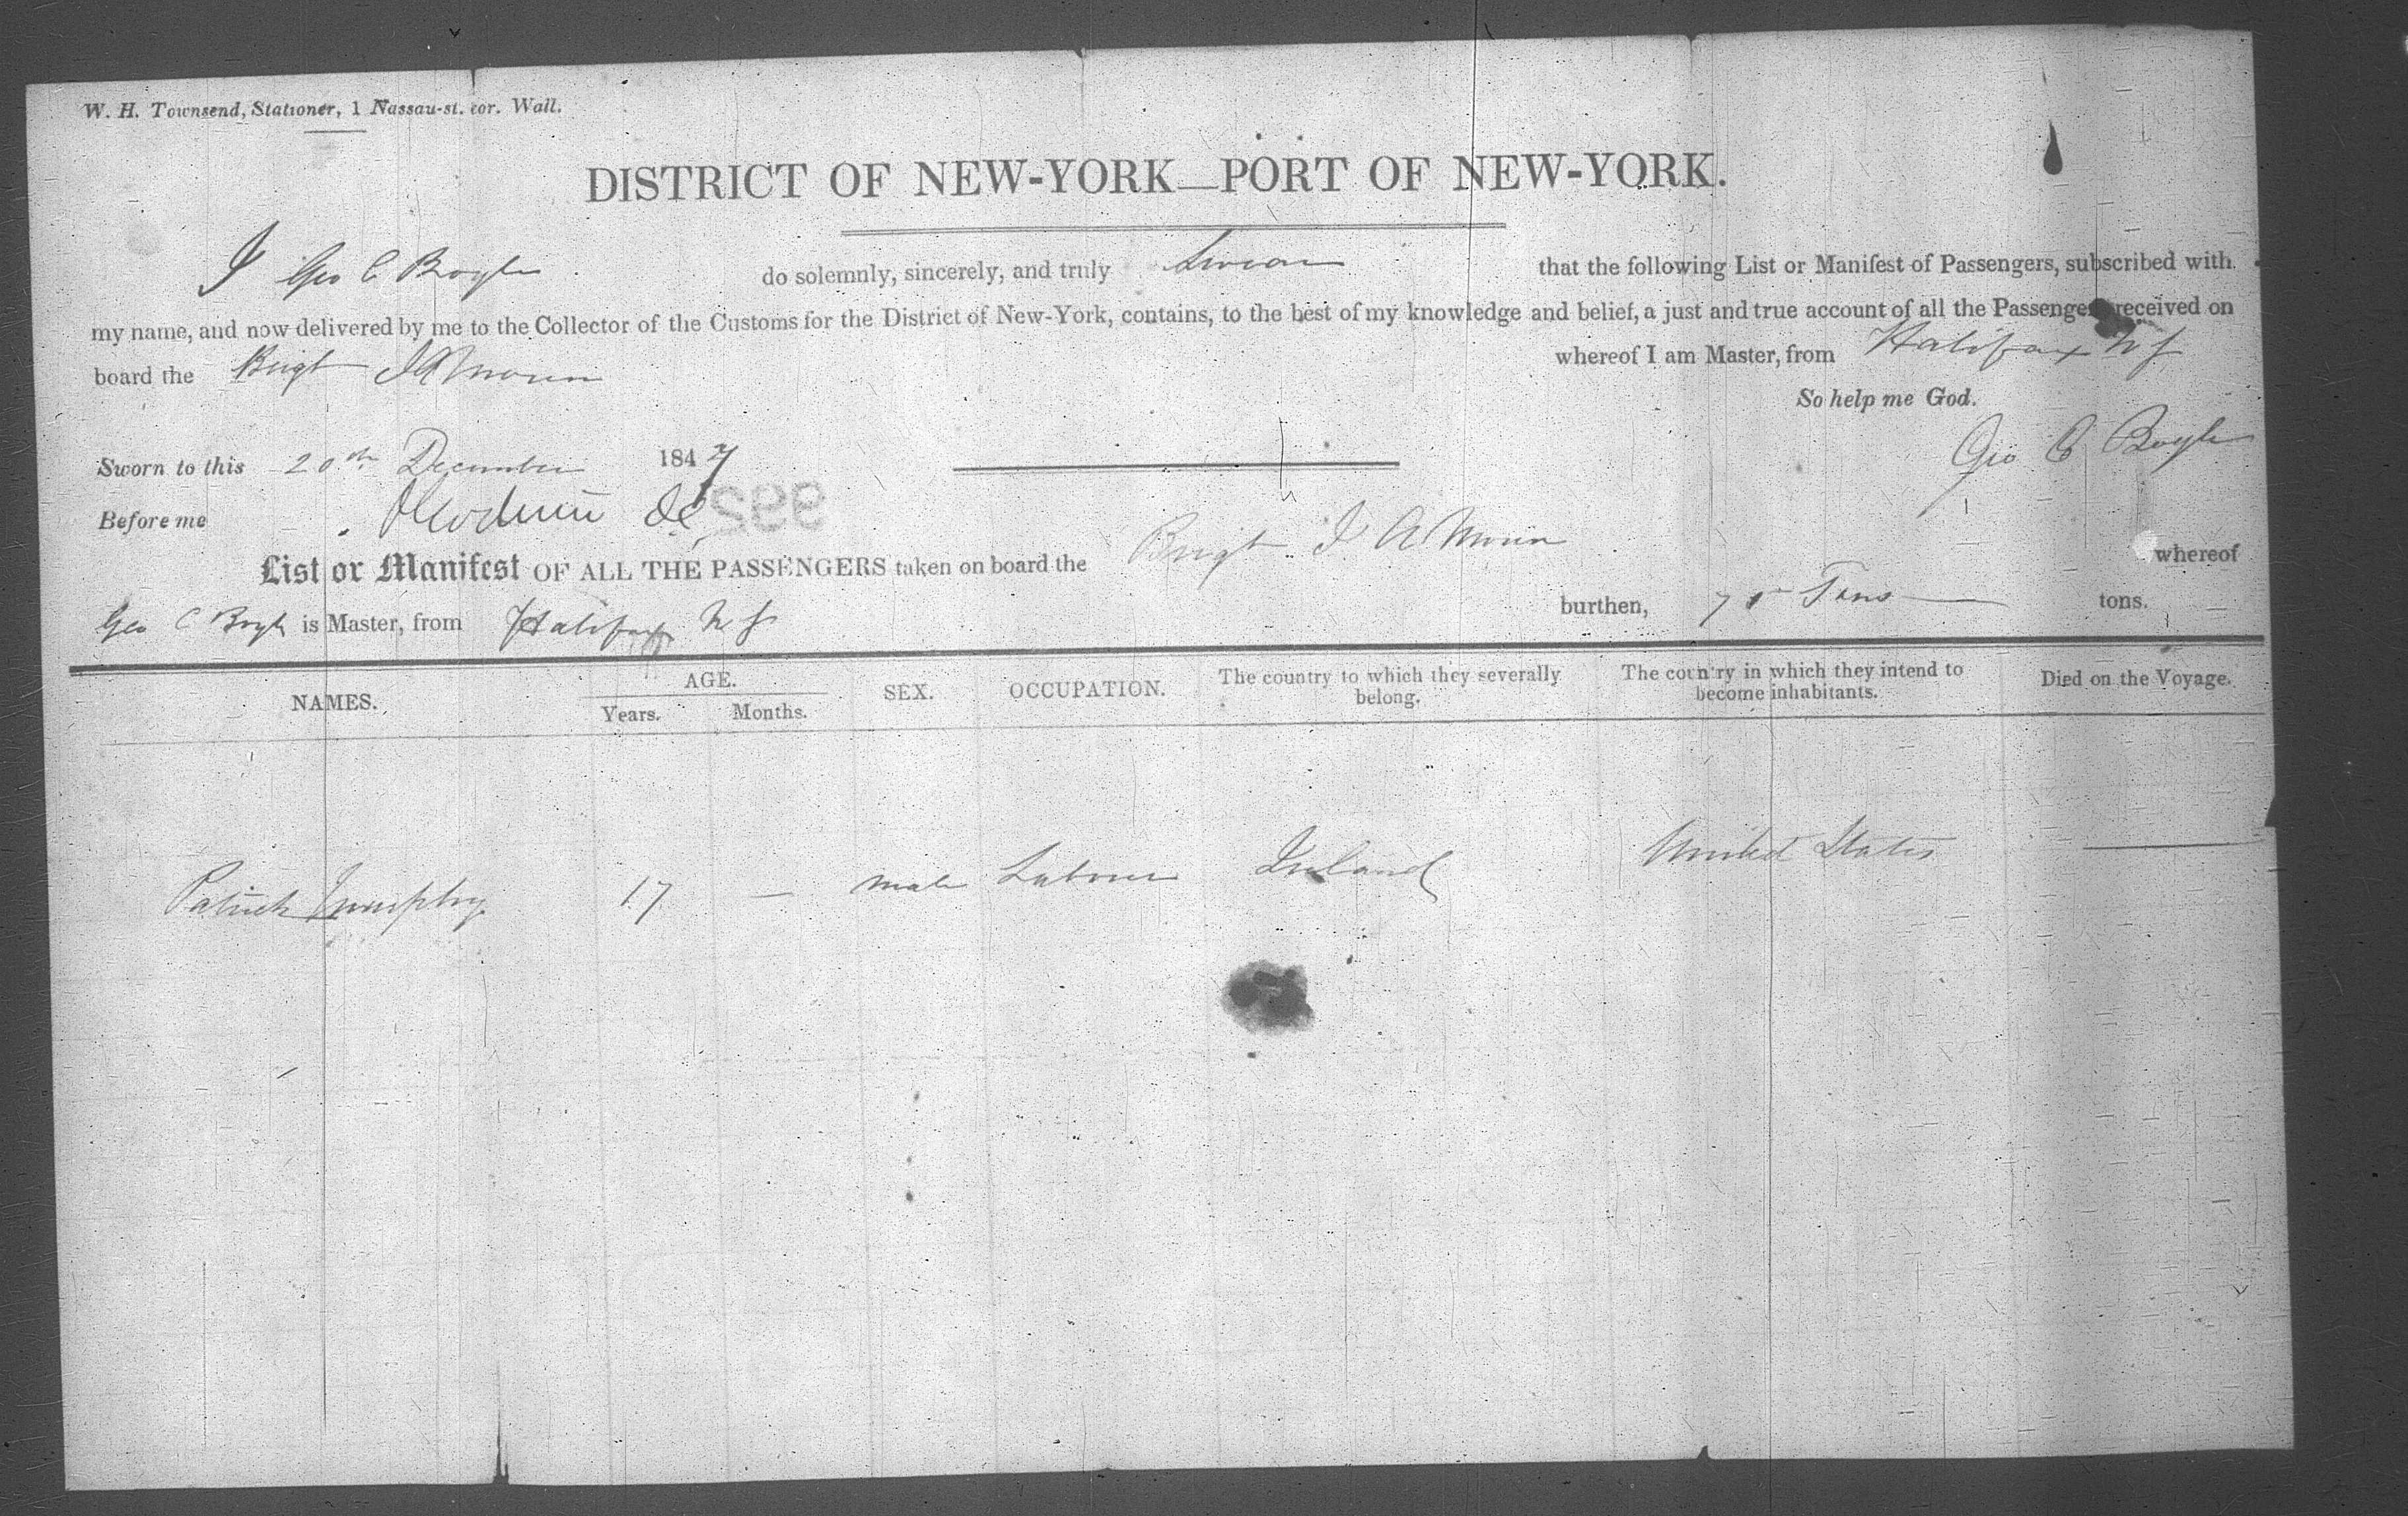 W. H. Townsend, Stationer, 1 Nassau-st. cor. Wall.
DISTRICT OF NEW-YORK—PORT OF NEW-YORK.
I Geo C Boyle do solemnly, sincerely, and truly Swear that the following List or Manifest of Passengers, subscribed with
my name, and now delivered by me to the Collector of the Customs for the District of New-York, contains, to the best of my knowledge and belief, a just and true account of all the Passengers received on
board the Brigt whereof I am Master, from Halifax N S
So help me God.
Sworn to this 20th December 1847 Geo C Boyle
Before me
List or Manifest OF ALL THE PASSENGERS taken on board the Brigt J A whereof
Geo C Boyle is Master, from Halifax N S burthen, Tons tons.
NAMES. AGE. Years. Months. SEX. OCCUPATION. The country to which they severally belong. The country in which they intend to become inhabitants. Died on the Voyage.
Patrick 17 — male Labourer Ireland United States —